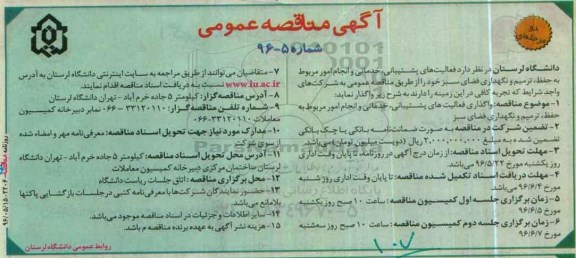 آگهی مناقصه عمومی
شماره ۵-۹۶
دانشگاه لرستان در نظر دارد فعالیت‌های پشتیبانی، خدماتی و انجام امور مربوط
به حفظ، ترمیم و نگهداری فضای سبز خود را از طریق مناقصه عمومی به شرکت‌های
واجد شرایط که تجربه کافی در این زمینه را دارند به شرح زیر واگذار نماید.
۱- موضوع مناقصه: واگذاری فعالیت های پشتیبانی، خدماتی و انجام امور مربوط به
حفظ، ترمیم و نگهداری فضای سبز
۲- تضمین شرکت در مناقصه به صورت ضمانت‌نامه بانکی یا چک بانکی
تضمین شده به مبلغ ۲,۰۰۰,۰۰۰,۰۰۰ ریال (دویست میلیون تومان) می‌باشد
۳- مهلت تحویل اسناد مناقصه: از زمان درج آگهی در روزنامه، تا پایان وقت اداری
روز یکشنبه مورخ ۹۶/۵/۲۲ می‌باشد
۴- مهلت دریافت اسناد تکمیل شده مناقصه: تا پایان وقت اداری روز شنبه
مورخ ۹۶/۶/۴ می‌باشد
۵- زمان برگزاری جلسه اول کمیسیون مناقصه: ساعت ۱۰ صبح روز یکشنبه
مورخ ۹۶/۶/۵
۶- زمان برگزاری جلسه دوم کمیسیون مناقصه: ساعت ۱۰ صبح روز سه‌شنبه
مورخ ۹۶/۶/۷
۷- متقاضیان می توانند از طریق مراجعه به سایت اینترنتی دانشگاه لرستان به آدرس
www.lu.ac.ir نسبت به دریافت اسناد مناقصه اقدام نمایند.
۸- آدرس مناقصه‌گزار: کیلومتر ۵ جاده خرم آباد - تهران دانشگاه لرستان
۹- شماره تلفن مناقصه‌گزار: ۳۳۱۲۰۱۱۰-۰۶۶ نمابر دبیرخانه کمیسیون
معاملات ۳۳۱۲۰۱۱۰-۰۶۶
۱۰- مدارک مورد نیاز جهت تحویل اسناد مناقصه: معرفی‌نامه مهر و امضاء شده
از سوی شرکت
۱۱- آدرس محل تحویل اسناد مناقصه: کیلومتر ۵ جاده خرم آباد - تهران دانشگاه
لرستان ساختمان مرکزی دبیرخانه کمیسیون معاملات
۱۲- محل برگزاری مناقصه: اتاق جلسات ریاست دانشگاه
۱۳- حضور نمایندگان شرکت‌ها با معرفی‌نامه کتبی در جلسات بازگشایی پاکتها
بلامانع می‌باشد
۱۴- سایر اطلاعات و جزئیات در اسناد مناقصه موجود می‌باشد.
۱۵- هزینه نشر آگهی به عهده برنده مناقصه می باشد.
روابط عمومی دانشگاه لرستان
۱۰۷